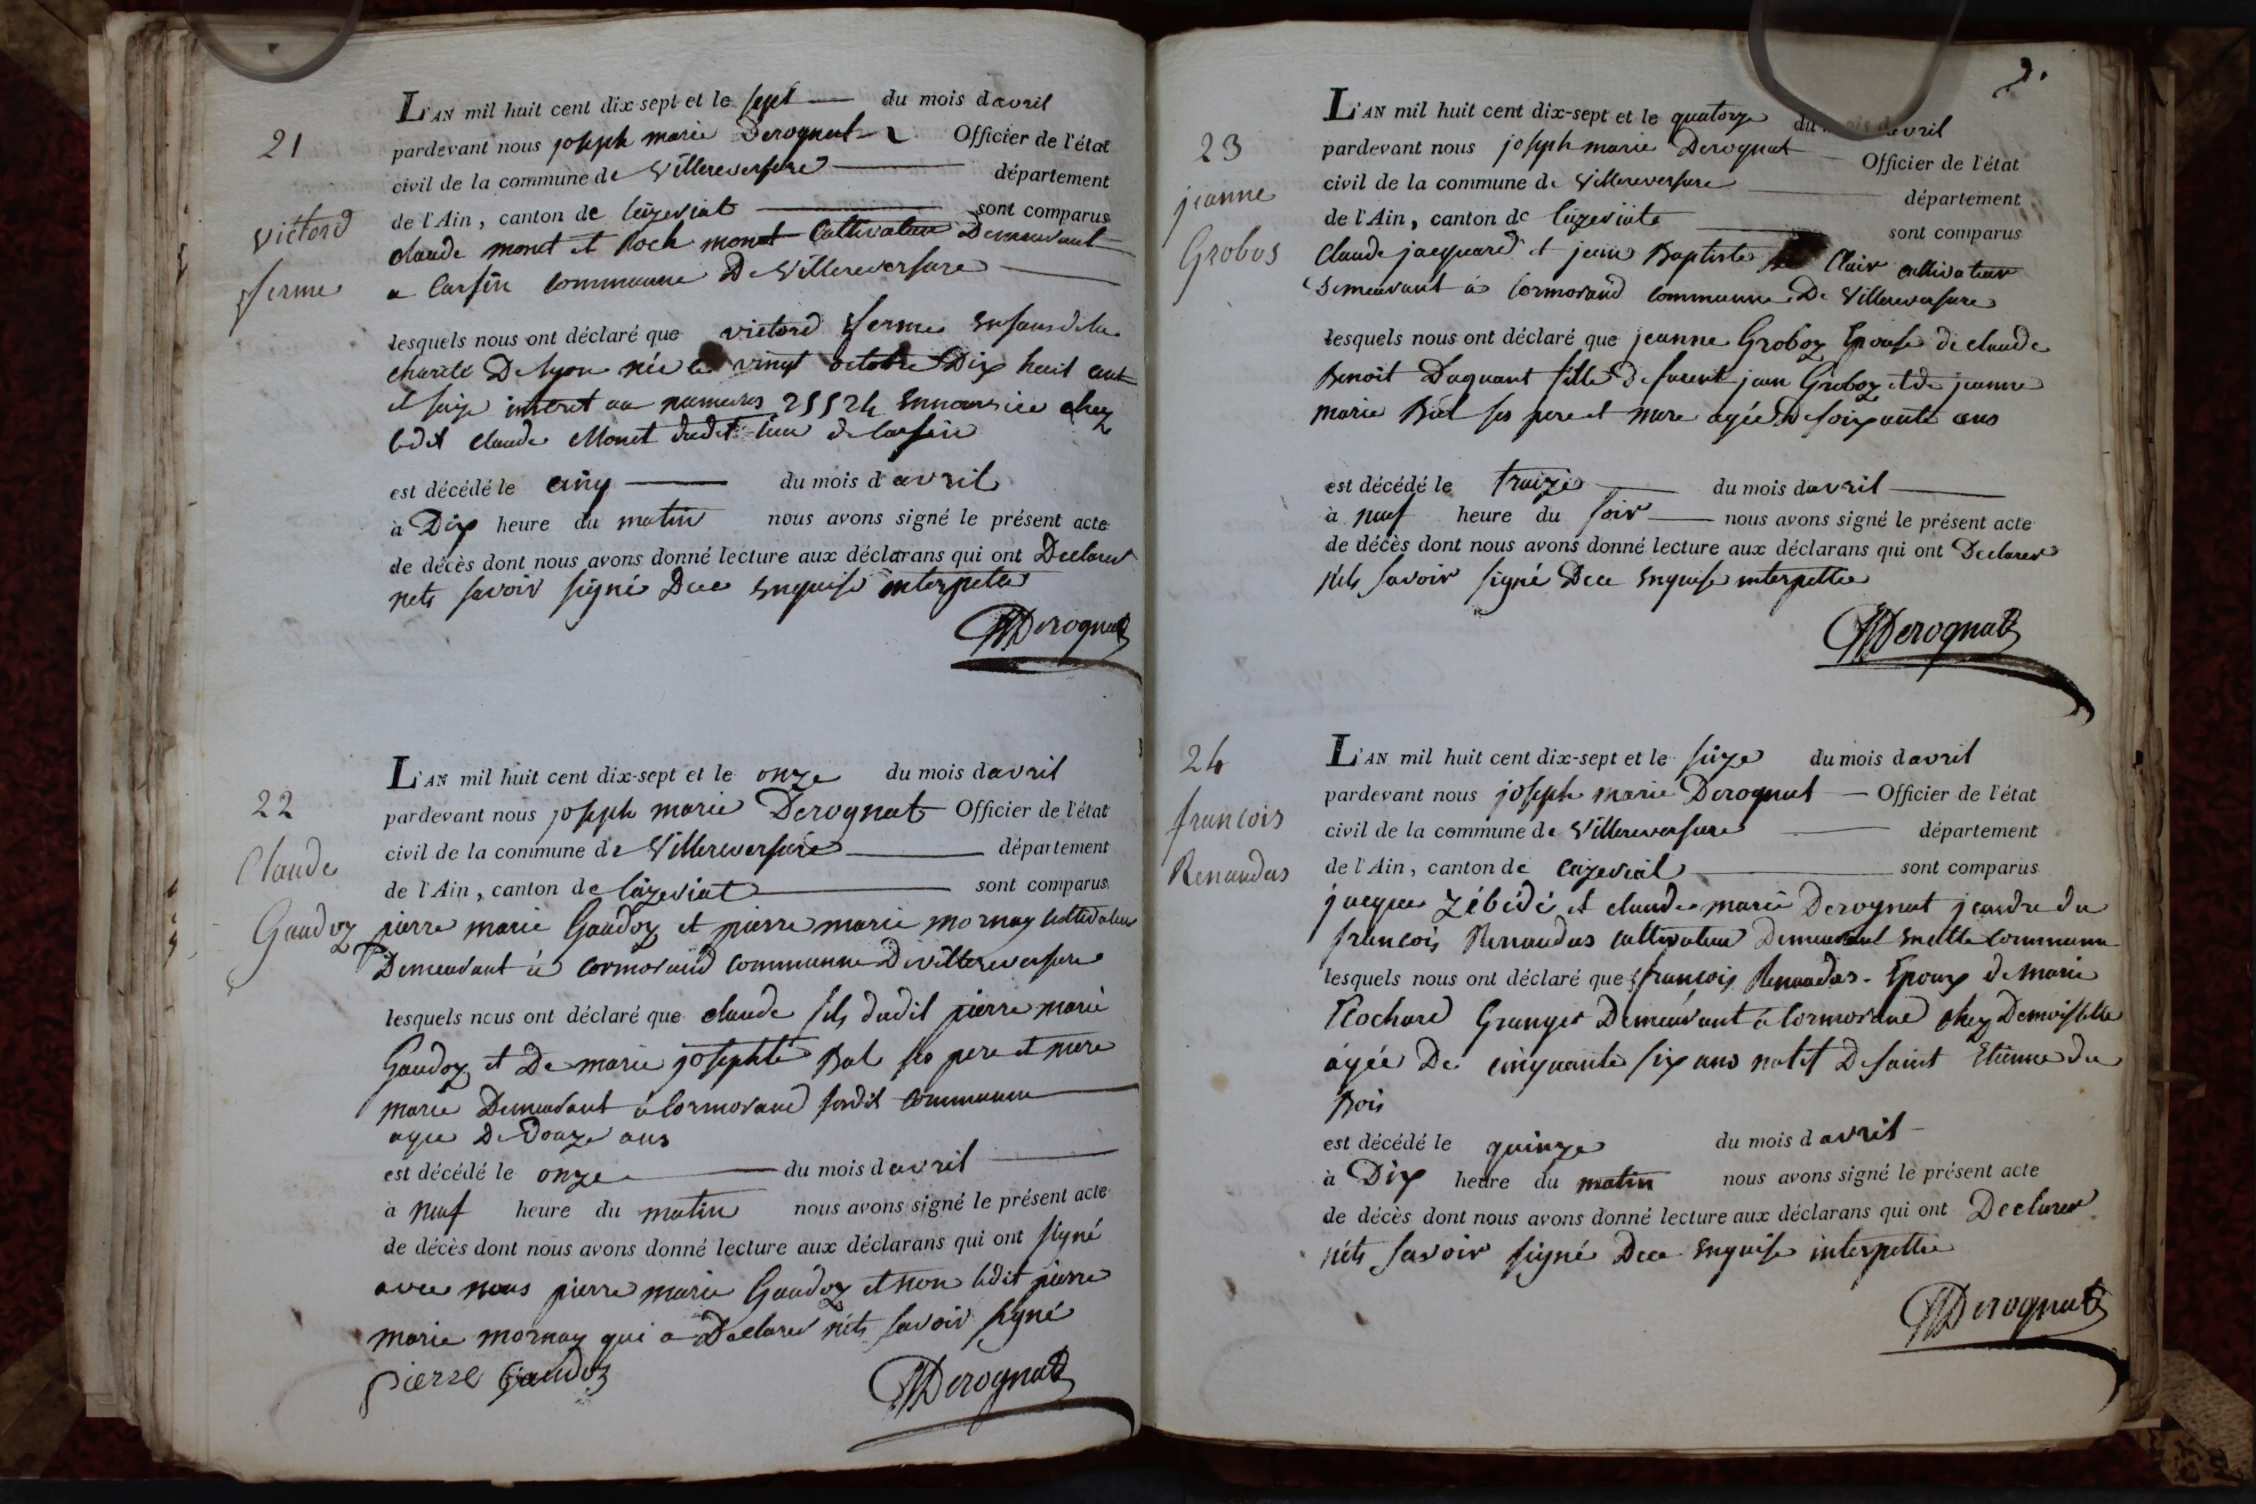 21
victord
ferme
L'AN mil huit cent dix-sept et le sept du mois davril
pardevant nous joseph marie Derognat Officier de l'état
civil de la commune de Villereversure département
de l'Ain, canton de Ceizeriat sont comparus
claude monet et Roch monet Cultivateur Demeurant
a Carsin commune De Villereversure
lesquels nous ont déclaré que victord ferme Enfans de la
charité De lyon née le vingt octobre Dix huit cent
et seize inscret au numeros 25524 Ennourice chez
ledit claude Monet dudit lieu de Carsin
est décédé le cinq du mois d avril
à Dix heure du matin nous avons signé le présent acte
de décès dont nous avons donné lecture aux déclarans qui ont Declarer
nets savoir signé Dece Enquise interpeller
Derognat
22
Claude
Gaudoz
L'AN mil huit cent dix-sept et le onze du mois davril
pardevant nous joseph marie Derognat Officier de l'état
civil de la commune de Villereversure département
de l'Ain, canton de Ceizeriat sont comparus
pierre marie Gaudoz et pierre marie mornay Cultivateur
Demeurant à cormorand commune De villereversure
lesquels nous ont déclaré que claude fils dudit pierre marie
Gaudoz et De marie josephte Bal ses pere et mere
marie Demeurant à Cormorand susdit commune
agee De Douze ans
est décédé le onze du mois davril
à neuf heure du matin nous avons signé le présent acte
de décès dont nous avons donné lecture aux déclarans qui ont signé
avec nous pierre marie Gaudoz et non ledit pierre
marie mornay qui a Declarer néts savoir signé
pierre Gaudoz
Derognat
23
jeanne
Grobos
L'AN mil huit cent dix-sept et le quatorze du mois davril
pardevant nous joseph marie Derognat Officier de l'état
civil de la commune de Villereversure département
de l'Ain, canton de Ceizeriate sont comparus
Claude jacquard et jean Baptiste Clair cultivateur
Demeurant à Cormorand commune De Villereversure
lesquels nous ont déclaré que jeanne Groboz Epouse de claude
Benoit Daguant fille De furent jean Groboz et de jeanne
marie Bal ses pere et mere agée De soixante ans
est décédé le traize du mois davril
à neuf heure du soir nous avons signé le présent acte
de décès dont nous avons donné lecture aux déclarans qui ont Declarer
néts savoir signé Dece Enquise interpellée
Derognat
24
francois
Renaudas
L'AN mil huit cent dix-sept et le seize du mois davril
pardevant nous joseph marie Derognat Officier de l'état
civil de la commune de Villereversure département
de l'Ain, canton de Ceizeriat sont comparus
jacque Zébédé et claude marie Derognat jeandre du
francois Renaudas cultivateur Demeurant En cette commune
lesquels nous ont déclaré que francois Renaudas Epoux de marie
Rochard Granger Demeurant à Cormorand chez Demoiselle
agée De cinquante six ans natif De saint Etienne du
Bois
est décédé le quinze du mois d avril
à Dix heure du matin nous avons signé le présent acte
de décès dont nous avons donné lecture aux déclarans qui ont Declarer
néts savoir signé Dece Enquise interpellée
Derognat